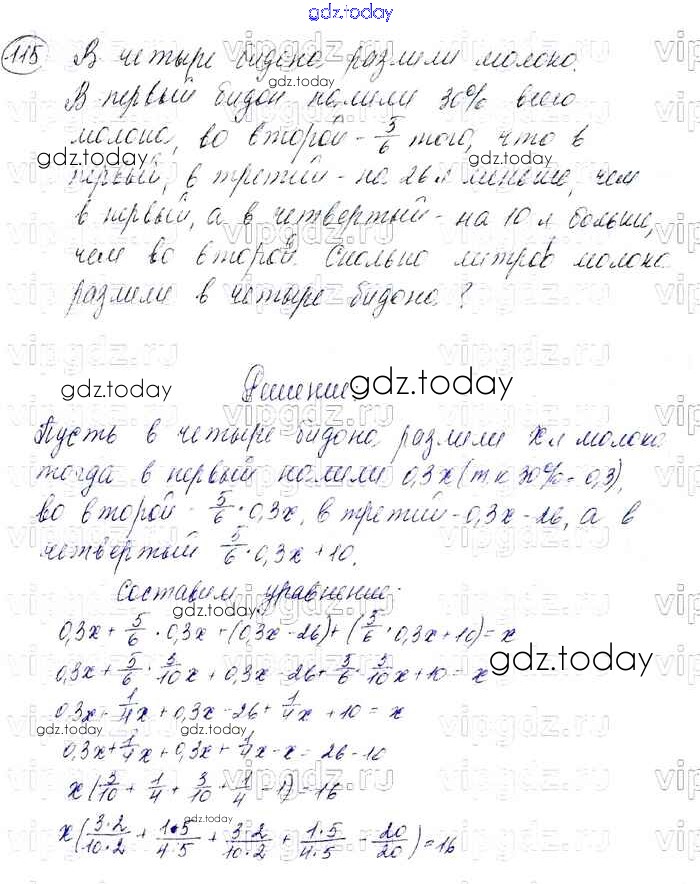 gdz.today
115 В четыре бидона разлили молоко.
В первый бидон налили 30% всего
молока, во второй - 5/6 того, что в
первый, в третий - на 26 л меньше, чем
в первый, а в четвертый - на 10 л больше,
чем во второй. Сколько литров молока
разлили в четыре бидона?
Решение.
Пусть в четыре бидона разлили x л молока
тогда в первый налили 0,3x (т.к 30% = 0,3),
во второй - 5/6 · 0,3x, в третий - 0,3x - 26, а в
четвертый 5/6 · 0,3x + 10.
Составим уравнение:
0,3x + 5/6 · 0,3x + (0,3x - 26) + (5/6 · 0,3x + 10) = x
0,3x + 5/6 · 3/10 x + 0,3x - 26 + 5/6 · 3/10 x + 10 = x
0,3x + 1/4 x + 0,3x - 26 + 1/4 x + 10 = x
0,3x + 1/4 x + 0,3x + 1/4 x - x = 26 - 10
x (3/10 + 1/4 + 3/10 + 1/4 - 1) = 16
x (3·2/10·2 + 1·5/4·5 + 3·2/10·2 + 1·5/4·5 - 20/20) = 16